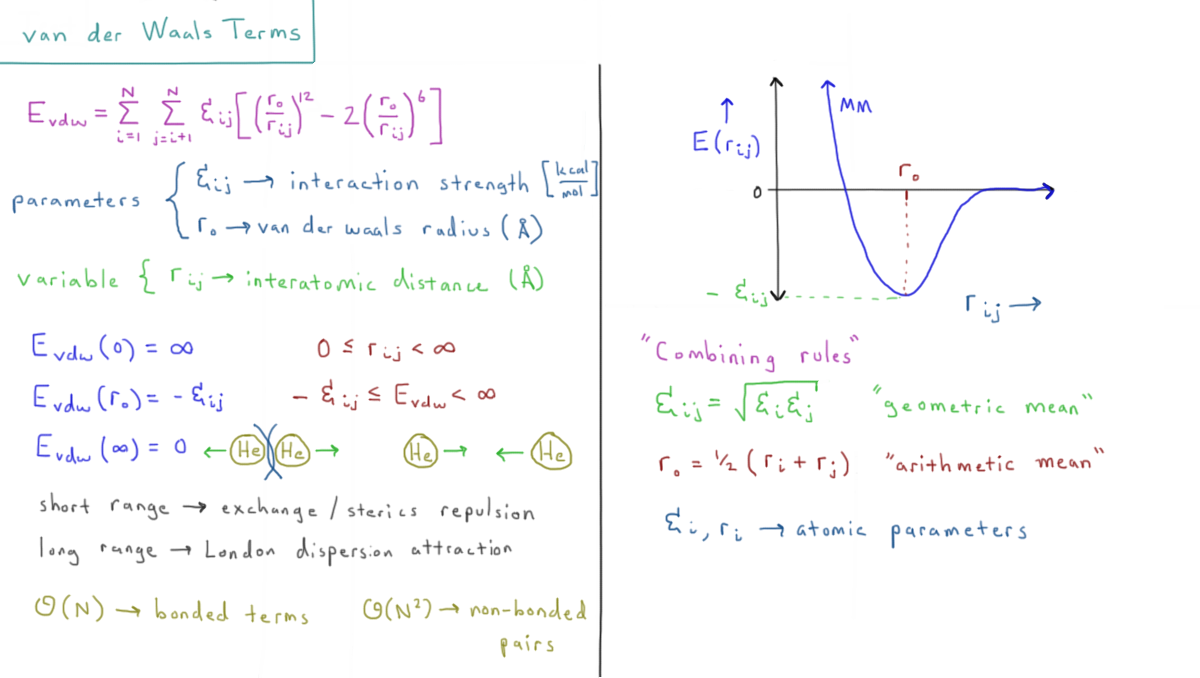 van der Waals Terms
E_vdw = Σ_{i=1}^{N} Σ_{j=i+1}^{N} ε_ij [ (r₀/r_ij)^12 − 2 (r₀/r_ij)^6 ]
parameters { ε_ij → interaction strength [kcal/mol]
r₀ → van der waals radius (Å)
variable { r_ij → interatomic distance (Å)
E_vdw (0) = ∞ 0 ≤ r_ij < ∞
E_vdw (r₀) = - ε_ij - ε_ij ≤ E_vdw < ∞
E_vdw (∞) = 0 ← He He → He → ← He
short range → exchange / sterics repulsion
long range → London dispersion attraction
O(N) → bonded terms O(N²) → non-bonded
pairs
↑ MM
E(r_ij)
r₀
0
- ε_ij
r_ij →
"Combining rules"
ε_ij = √(ε_i ε_j) "geometric mean"
r₀ = ½ (r_i + r_j) "arithmetic mean"
ε_i, r_i → atomic parameters